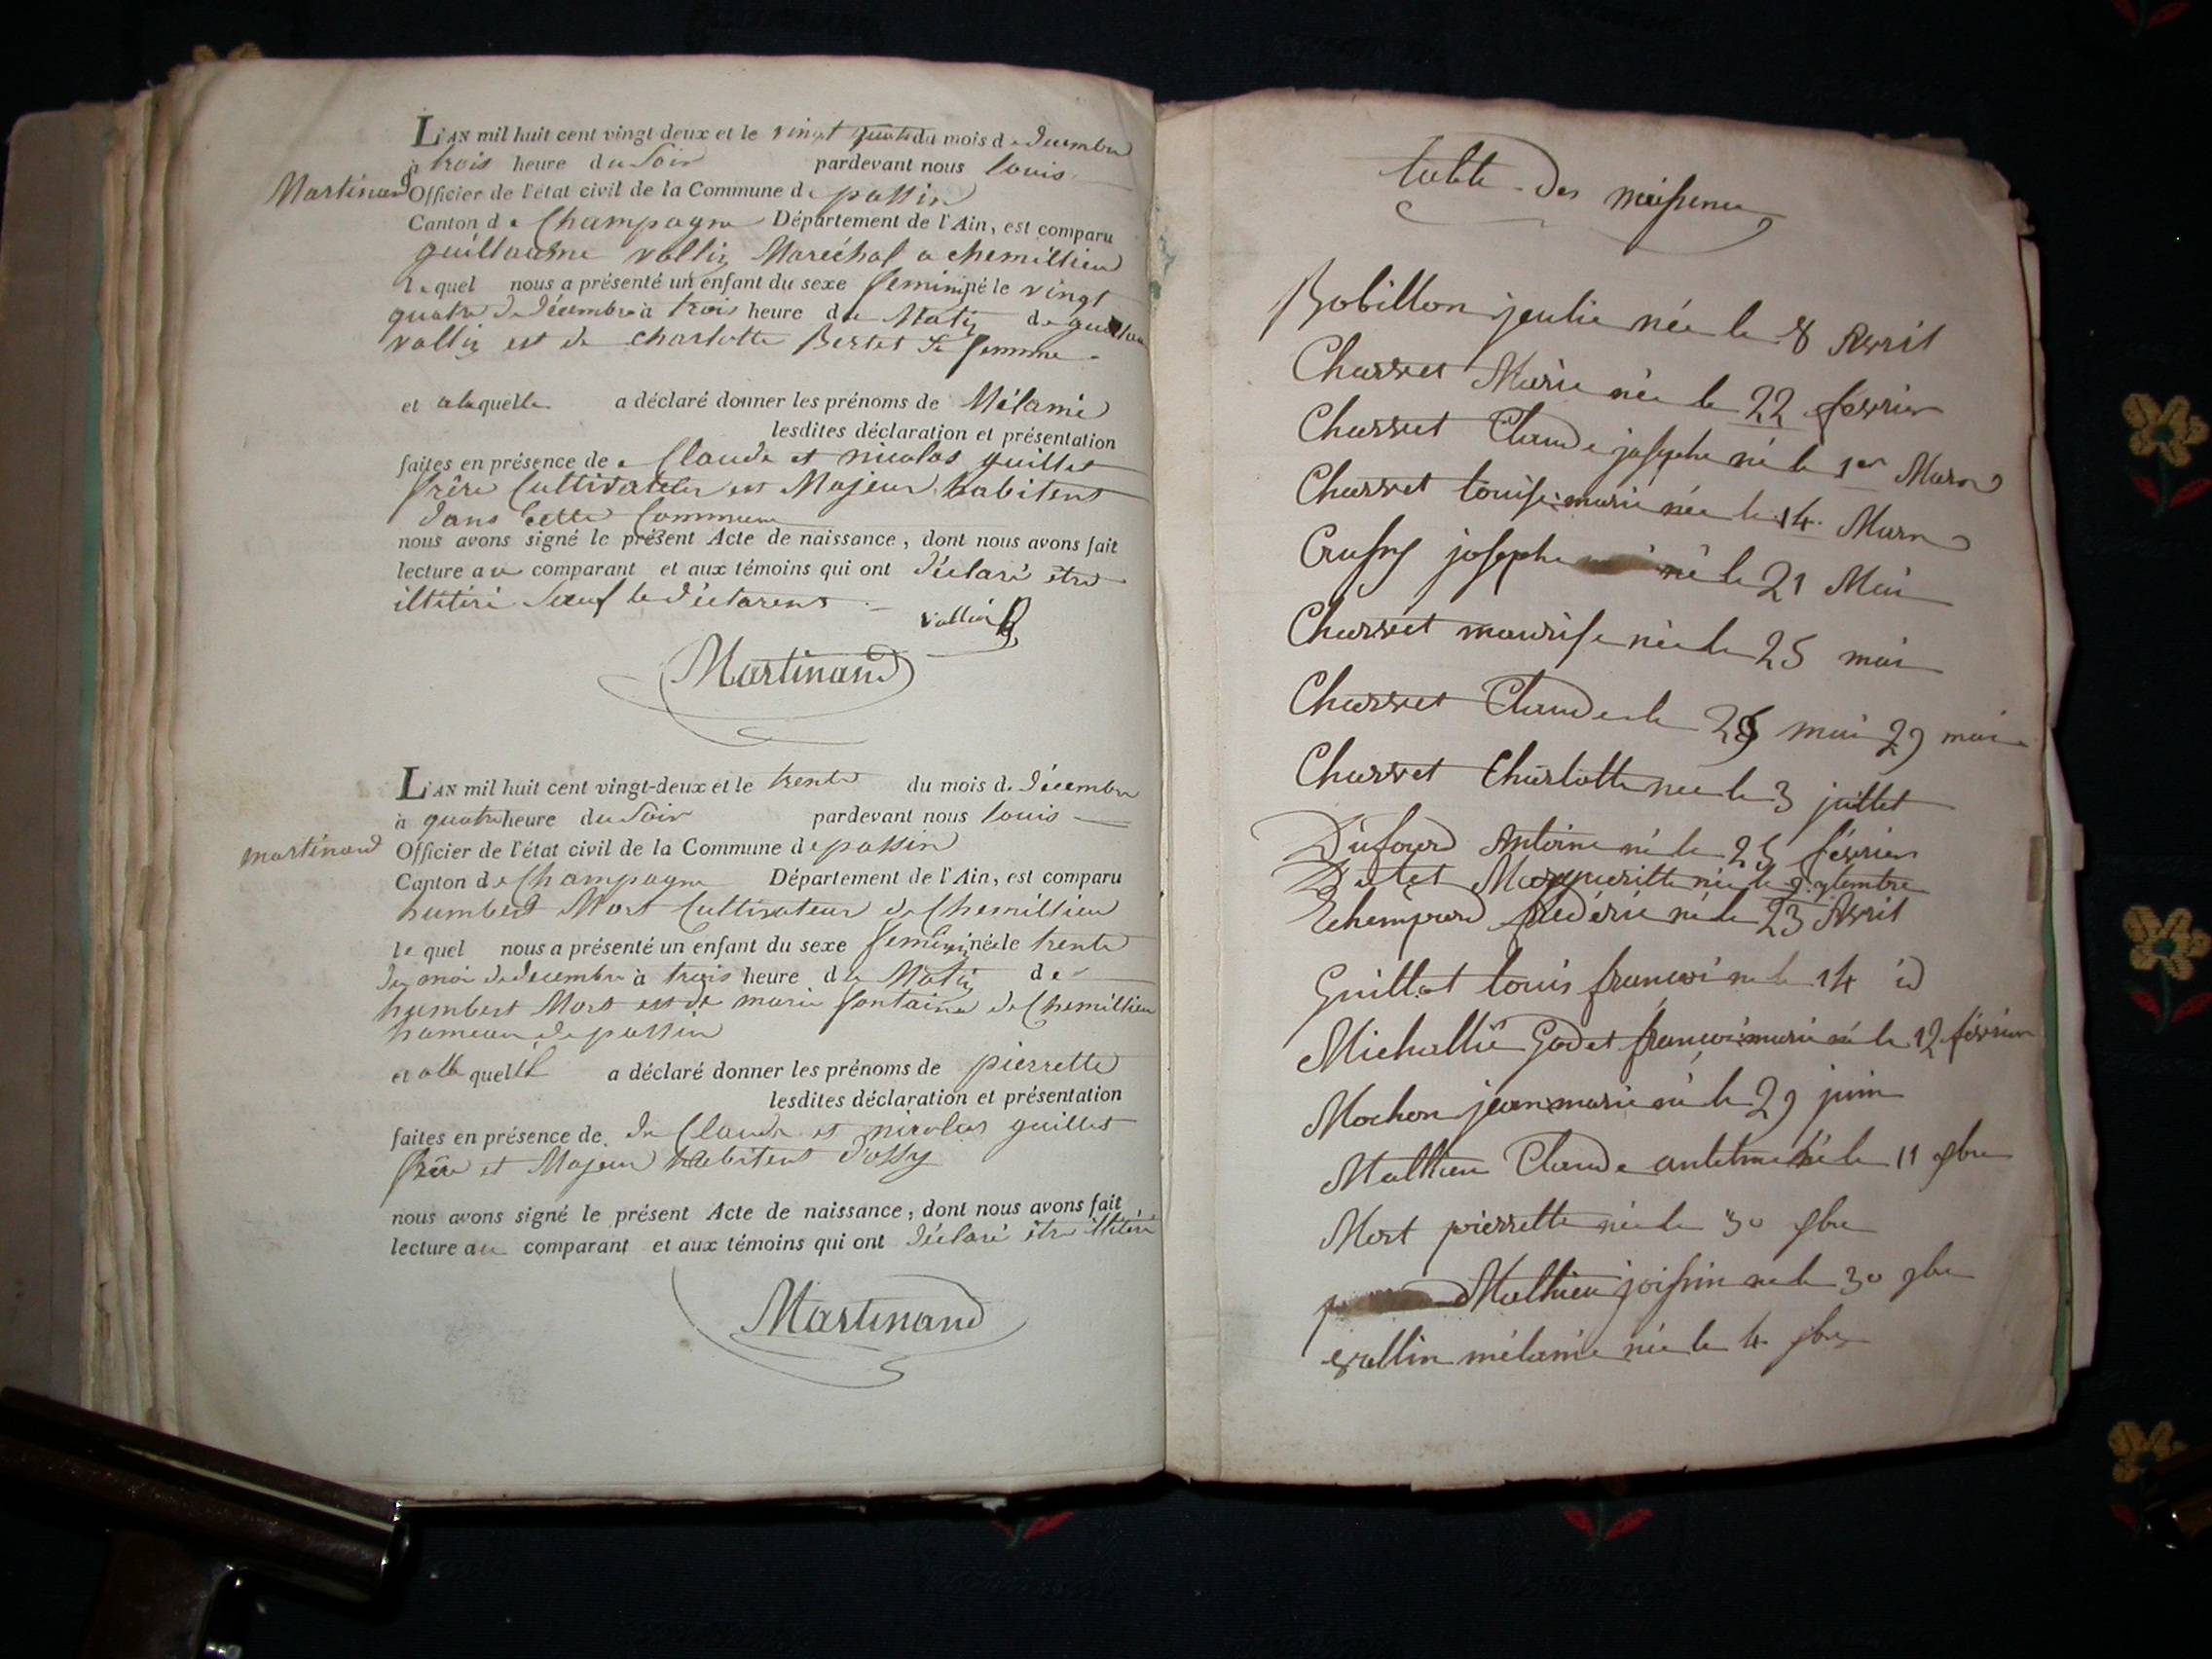 L'AN mil huit cent vingt deux et le vingt quatre du mois de décembre
à trois heure du Soir pardevant nous louis
Martinand Officier de l'état civil de la Commune de passin
Canton de Champagne Département de l'Ain, est comparu
guillaume vallin Maréchal a chemillieu
le quel nous a présenté un enfant du sexe feminin né le vingt
quatre de décembre à trois heure du Matin de guillaume
vallin est de charlotte Bertet sa femme
et alequelle a déclaré donner les prénoms de Mélanie
lesdites déclaration et présentation
faites en présence de Claude et nicolas guillet
frère Cultivateur et Majeur habitent
dans Cette Commune
nous avons signé le présent Acte de naissance, dont nous avons fait
lecture au comparant et aux témoins qui ont déclaré être
illitéré Sauf le déclarent
vallin
Martinand
L'AN mil huit cent vingt-deux et le trente du mois de décembre
à quatre heure du Soir pardevant nous louis
martinand Officier de l'état civil de la Commune de passin
Canton de Champagne Département de l'Ain, est comparu
humbert Mort Cultivateur de Chemillieu
le quel nous a présenté un enfant du sexe feminin née le trente
du moi de decembre à trois heure du Matin de
humbert Mort est de marie fontaine de Chemillieu
hameau de passin
et alle quelle a déclaré donner les prénoms de pierrette
lesdites déclaration et présentation
faites en présence de de Claude et nicolas guillet
frère et Majeur habitent
nous avons signé le présent Acte de naissance, dont nous avons fait
lecture au comparant et aux témoins qui ont déclaré être illitéré
Martinand
table des naissence
Bobillon jeulie née le 8 Avril
Charvet Marie née le 22 février
Charvet Claude josephe né le 1er Mars
Charvet louise marie née le 14 Mars
josephe né le 21 Mai
Charvet mourise née le 25 mai
Charvet Claude le mai 29 mai
Charvet Charlotte née le 3 juillet
Dufour Antoine né le 25 février
Margueritte née le 9 7tembre
fréderic né le 23 Avril
Guillot louis françoi né le 14 id
Michallié Godet françoi marie né le 12 février
Mochon jean marie né le 29 juin
Mathieu Claude né le 11 9bre
Mort pierrette née le 30
Mathieu né le 30 9bre
vallin mélanie née le 4